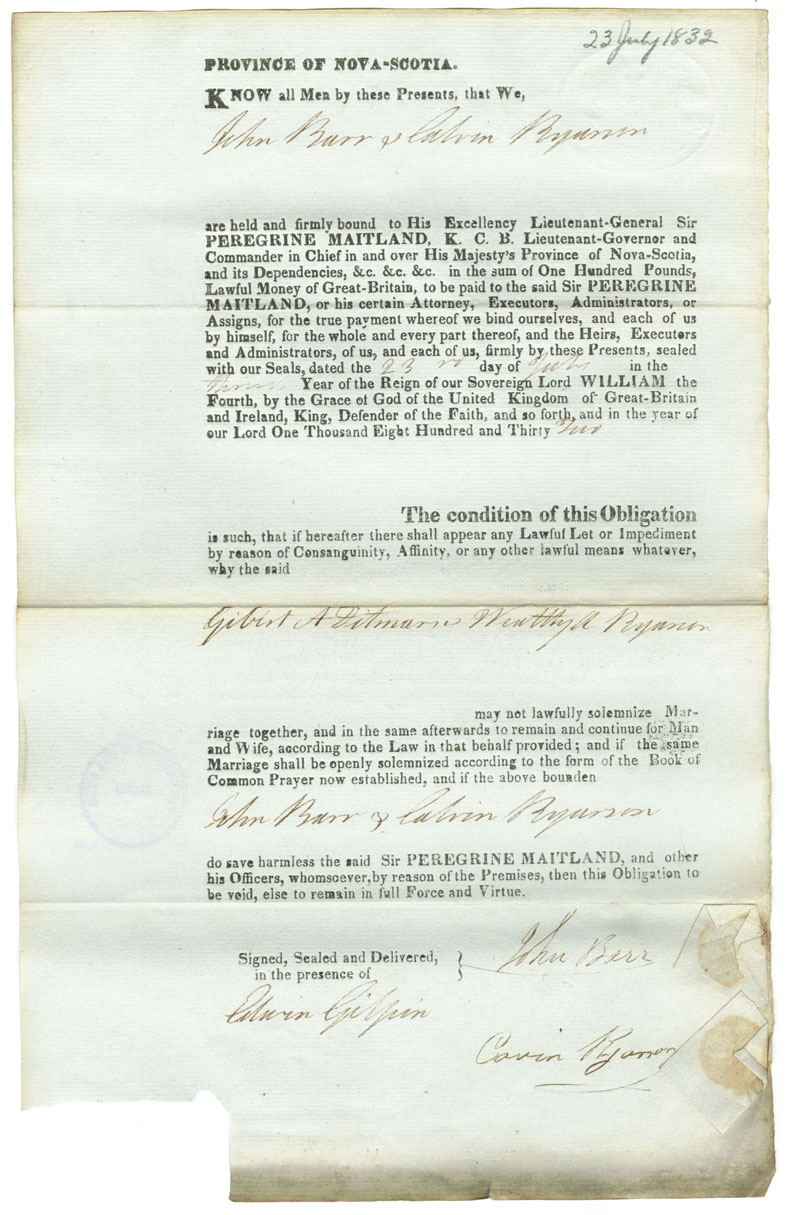 23 July 1832
PROVINCE OF NOVA-SCOTIA.
KNOW all Men by these Presents, that We,
John Barr & Calvin Ryarson
are held and firmly bound to His Excellency Lieutenant-General Sir
PEREGRINE MAITLAND, K. C. B. Lieutenant-Governor and
Commander in Chief in and over His Majesty's Province of Nova-Scotia,
and its Dependencies, &c. &c. &c. in the sum of One Hundred Pounds,
Lawful Money of Great-Britain, to be paid to the said Sir PEREGRINE
MAITLAND, or his certain Attorney, Executors, Administrators, or
Assigns, for the true payment whereof we bind ourselves, and each of us
by himself, for the whole and every part thereof, and the Heirs, Executors
and Administrators, of us, and each of us, firmly by these Presents, sealed
with our Seals, dated the 23rd day of July in the
Year of the Reign of our Sovereign Lord WILLIAM the
Fourth, by the Grace of God of the United Kingdom of Great-Britain
and Ireland, King, Defender of the Faith, and so forth, and in the year of
our Lord One Thousand Eight Hundred and Thirty Two
The condition of this Obligation
is such, that if hereafter there shall appear any Lawful Let or Impediment
by reason of Consanguinity, Affinity, or any other lawful means whatever,
why the said
Gibert A Ditmars Ryarson
may not lawfully solemnize Mar-
riage together, and in the same afterwards to remain and continue for Man
and Wife, according to the Law in that behalf provided; and if the same
Marriage shall be openly solemnized according to the form of the Book of
Common Prayer now established, and if the above bounden
John Barr & Calvin Ryarson
do save harmless the said Sir PEREGRINE MAITLAND, and other
his Officers, whomsoever, by reason of the Premises, then this Obligation to
be void, else to remain in full Force and Virtue.
Signed, Sealed and Delivered, } John Barr
in the presence of
Edwin Gilpin
Cavin Ryarson